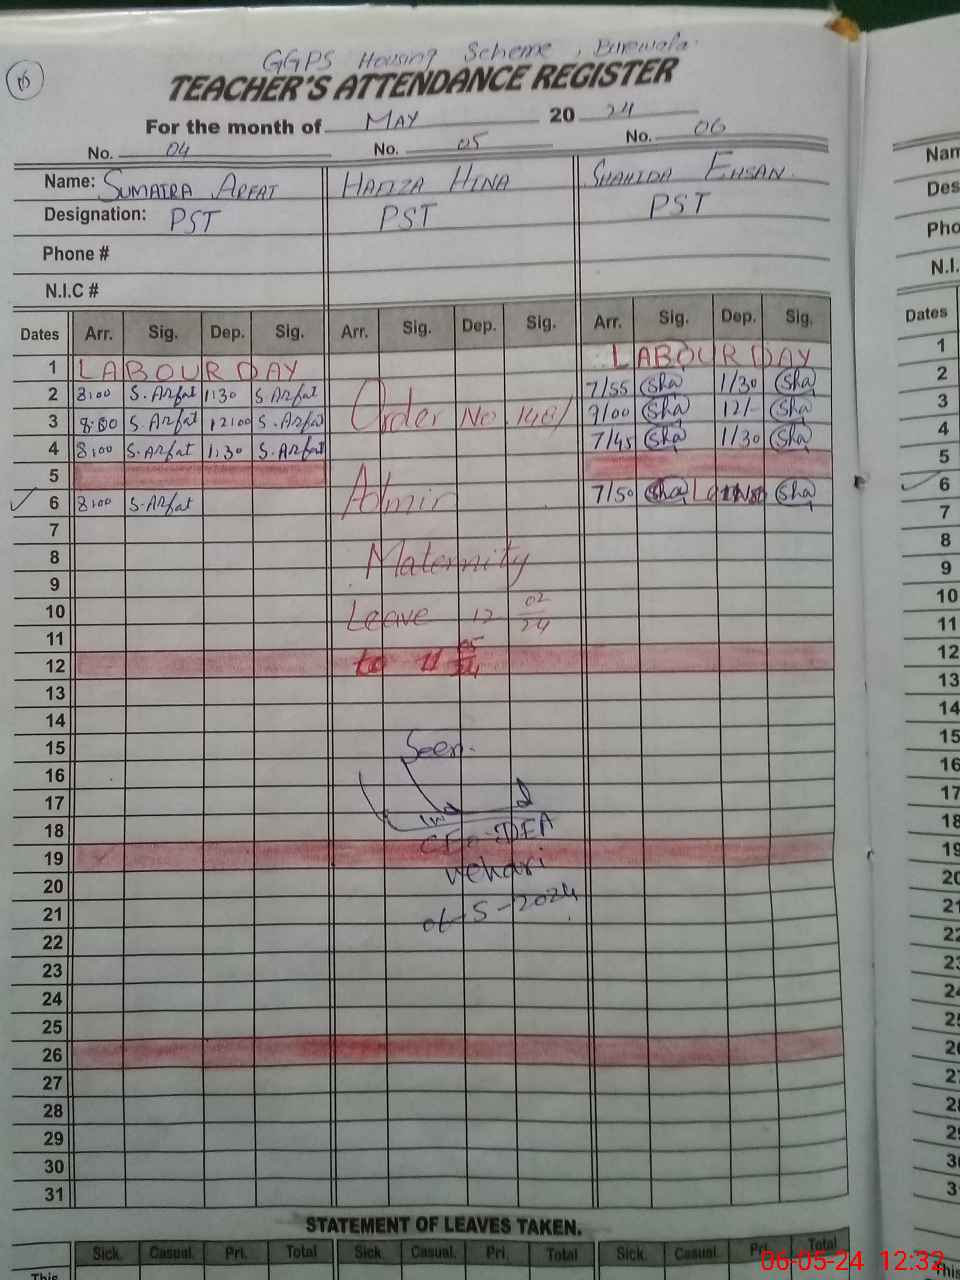 GGPS Housing Scheme, Burewala
TEACHER'S ATTENDANCE REGISTER
For the month of MAY 20 24
No. 04 No. 05 No. 06
Name: SUMAIRA ARFAT HAFIZA HINA SHAHIDA EHSAN
Designation: PST PST PST
Phone #
N.I.C #
Dates Arr. Sig. Dep. Sig. Arr. Sig. Dep. Sig. Arr. Sig. Dep. Sig.
1 LABOUR DAY LABOUR DAY
2 8:00 S.Arfat 1:30 S.Arfat 7/55 Sha 1/30 Sha
3 8:00 S.Arfat 12:00 S.Arfat Order No. 9/00 Sha 12/- Sha
4 8:00 S.Arfat 1:30 S.Arfat 7/45 Sha 1/30 Sha
5
6 8:00 S.Arfat Admin 7/50 Sha Sha
7
8 Maternity
9
10 Leave 12 02/24
11
12 to 11 05/24
13
14
15 Seen.
16
17
18 CEO DEA
19 Vehari
20
21 06-5-2024
22
23
24
25
26
27
28
29
30
31
STATEMENT OF LEAVES TAKEN.
Sick. Casual. Pri. Total Sick. Casual. Pri. Total Sick. Casual. Pri. Total
This
Nam
Des
Pho
N.I.
Dates
1
2
3
4
5
6
7
8
9
10
11
12
13
14
15
16
17
18
19
20
21
22
23
24
25
26
27
28
29
30
This
06-05-24 12:32